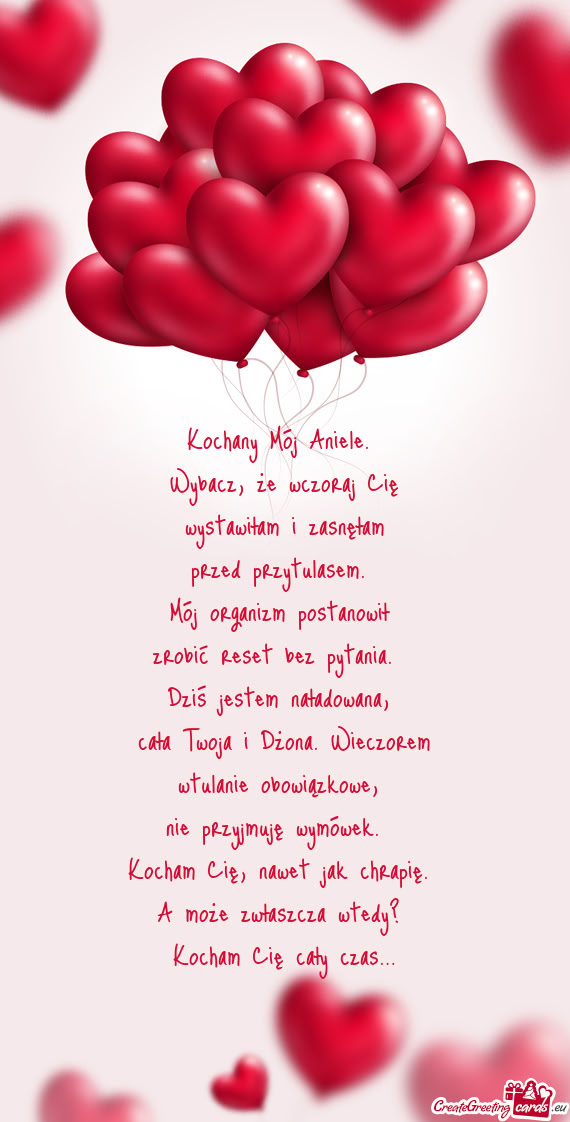 Kochany Mój Aniele.
Wybacz, że wczoraj Cię
wystawiłam i zasnęłam
przed przytulasem.
Mój organizm postanowił
zrobić reset bez pytania.
Dziś jestem naładowana,
cała Twoja i Dżona. Wieczorem
wtulanie obowiązkowe,
nie przyjmuję wymówek.
Kocham Cię, nawet jak chrapię.
A może zwłaszcza wtedy?
Kocham Cię cały czas...
CreateGreeting cards .eu